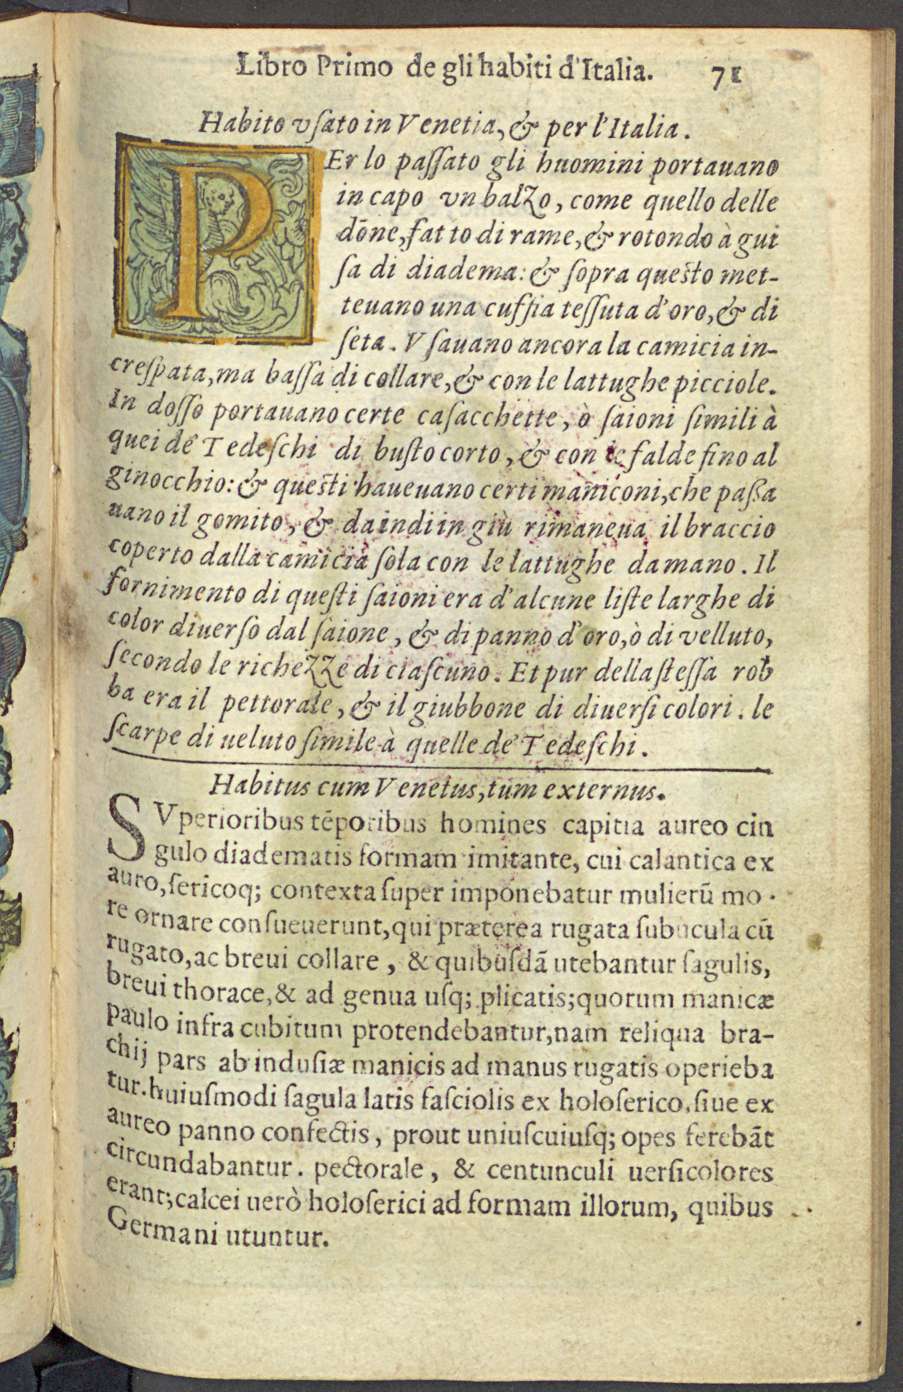 Libro Primo de gli habiti d'Italia. 71
Habito vſato in Venetia, & per l'Italia.
PEr lo paſſato gli huomini portauano
in capo vn balzo, come quello delle
dōne, fatto di rame, & rotondo à gui
ſa di diadema: & ſopra queſto met-
teuano una cuffia teſſuta d'oro, & di
ſeta. Vſauano ancora la camicia in-
creſpata, ma baſſa di collare, & con le lattughe picciole.
In doſſo portauano certe caſacchette, ò ſaioni ſimili à
quei de' Tedeſchi di buſto corto, & con le falde fino al
ginocchio: & queſti haueuano certi maniconi, che paßa
uano il gomito, & da indi in giù rimaneua il braccio
coperto dalla camicia ſola con le lattughe da mano. Il
fornimento di queſti ſaioni era d'alcune liſte larghe di
color diuerſo dal ſaione, & di panno d'oro, ò di velluto,
ſecondo le richezze di ciaſcuno. Et pur della ſteſſa rob
ba era il pettorale, & il giubbone di diuerſi colori. le
ſcarpe di ueluto ſimile à quelle de' Tedeſchi.
Habitus cum Venetus, tum externus.
SVperioribus tēporibus homines capitia aureo cin
gulo diadematis formam imitante, cui calantica ex
auro, ſericoq; contexta ſuper imponebatur mulierū mo
re ornare conſueuerunt, qui præterea rugata ſubucula cū
rugato, ac breui collare, & quibuſdā utebantur ſagulis,
breui thorace, & ad genua uſq; plicatis; quorum manicæ
paulo infra cubitum protendebantur, nam reliqua bra-
chij pars ab induſiæ manicis ad manus rugatis operieba
tur. huiuſmodi ſagula latis faſciolis ex holoſerico, ſiue ex
aureo panno confectis, prout uniuſcuiuſq; opes ferebāt
circundabantur. pectorale, & centunculi uerſicolores
erant; calcei uerò holoſerici ad formam illorum, quibus
Germani utuntur.